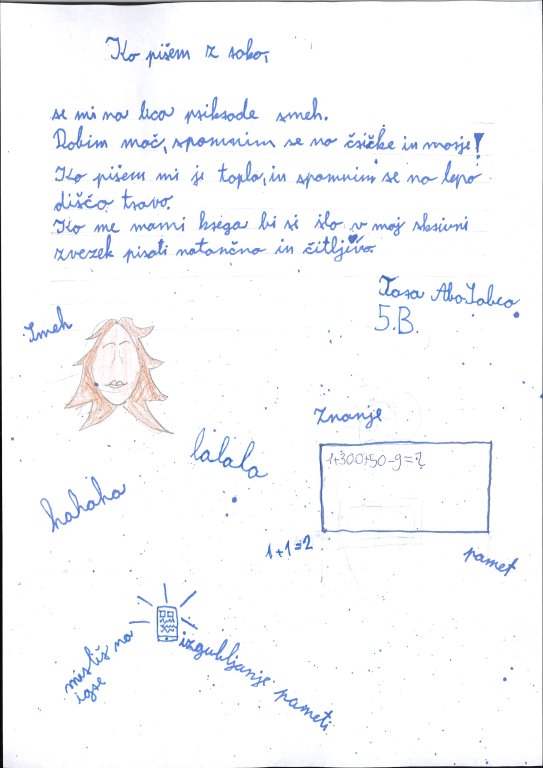 Ko pišem z roko,
se mi na lica prikrade smeh.
Dobim moč, spomnim se na čričke in morje!
Ko pišem mi je toplo, in spomnim se na lepo
dišečo travo.
Ko me mami krega bi si šlo v moj skrivni
zvezek pisati natančno in čitljivo.
5.B.
Smeh
Znanje
1+300+50-9=?
lalala
hahaha
1+1=2
pamet
misliš na
igre
izgubljanje pameti